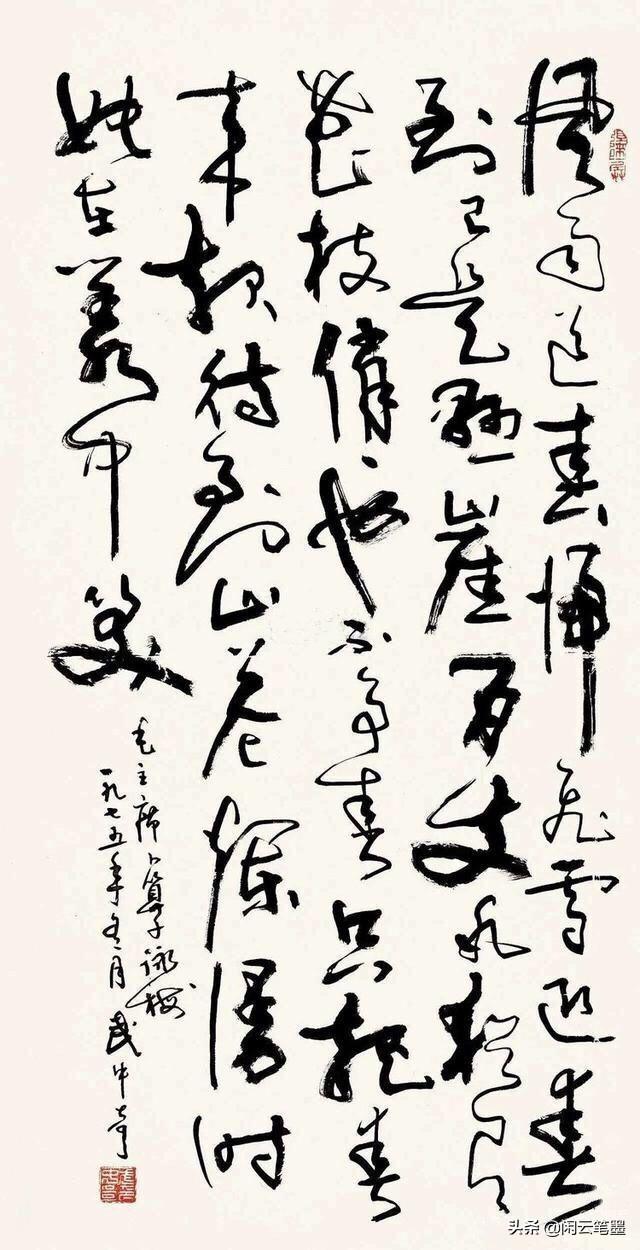 風雨送春歸飛雪迎春
到已是懸崖百丈冰猶有
花枝俏也不争春只把春
来报待到山花爛漫时
她在叢中笑
毛主席卜算子咏梅
一九七五年冬月武中奇
头条 @闲云笔墨